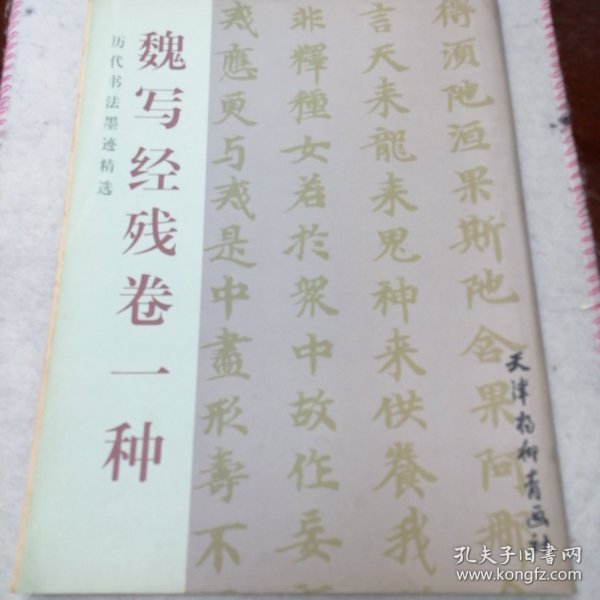 魏写经残卷一种
历代书法墨迹精选
得须陁洹果斯陁含果阿那
言天来龍来鬼神来供養我
非釋種女若於衆中故作妄
戒應更与戒是中盡形壽不
天津杨柳青画社
孔夫子旧书网
www.kongfz.com